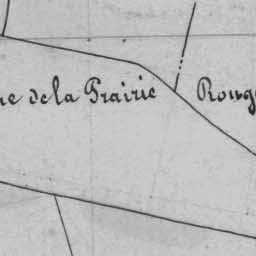 ue de la Prairie Roug